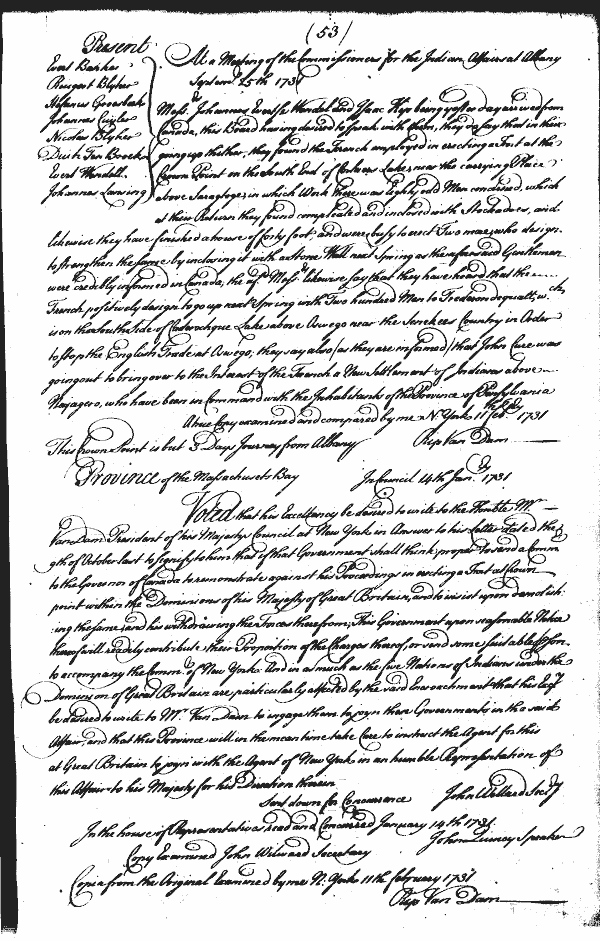 (53)
Present
Evert Bancker
Rutgert Blyker
Johannes Cuyler
Nicolas Blyker
Evert Wendell.
Johannes Lansing
At a Meeting of the Commissioners for the Indian Affairs at Albany
Septemr. 25th 1731
Messrs. Johannes Evertse Wendel and being yesterday arrived from
Canada, this Board having desired to speak with them, they do say that in their
going up thither, they found the French employed in erecting a Fort at the
Crown Point on the South End of Corlaers Lake, near the carrying Place
above Saragtoge, in which Work there was Eighty odd Men concerned, which
at their Return they found compleated and inclosed with Stockadoes, and
likewise they have finished a house of forty foot, and were busy to erect Two more, who design
to strengthen the same by inclosing it with a stone Wall next Spring as the aforesaid Gentlemen
were credibly informed in Canada, the afsd. Messrs. likewise say that they have heard that the
French positively design to go up next Spring with Two hundred Men to wch.
is on the South Side of Lake above Oswego near the Senekees Country in Order
to stop the English Trade at Oswego, they say also (as they are informed) that John Cure was
going out to bring over to the Interest of the French a New Settlement of Indians above
who have been in Command with the Inhabitants of the Province of Pensylvania
A true Copy examined and compared by me N. York 11th Feby. 1731
This Crown Point is but 3 Days Journey from Albany Rip Van Dam
Province of the Massachusets Bay In Council 14th Jany. 1731
Voted that his Excellency be desired to write to the Honble Mr.
Van Dam President of his Majestys Council at New York in Answer to his Letter dated the
9th of October last to signify to him that if that Government shall think proper to send a Comm
to the Governor of Canada to remonstrate against his Proceedings in erecting a Fort at Crown
point within the Dominions of his Majesty of Great Britain, and to insist upon demolish
ing the same, and his withdrawing the Forces therefrom; This Government upon seasonable Notice
thereof will readily contribute their Proportion of the Charges thereof, or send some suitable Person
to accompany the Comm. of New York And in as much as the five Nations of Indians under the
Dominion of Great Britain are particularly affected by the said Encroachment that his Excy.
be desired to write to Mr. Van Dam to engage them to joyn these Governments in the said
Affair, and that this Province will in the mean time take Care to instruct the Agent for this
at Great Britain to joyn with the Agent of New York in an humble Representation of
this Affair to his Majesty for his Direction therein
Sent down for Concurrence John Willard Secry
In the house of Representatives read and Concurred January 14th 1731.
John Quincy Speaker
Copy Examined John Willard Secretary
Copia from the Original Examined by me N. York 11th february 1731
Rip Van Dam